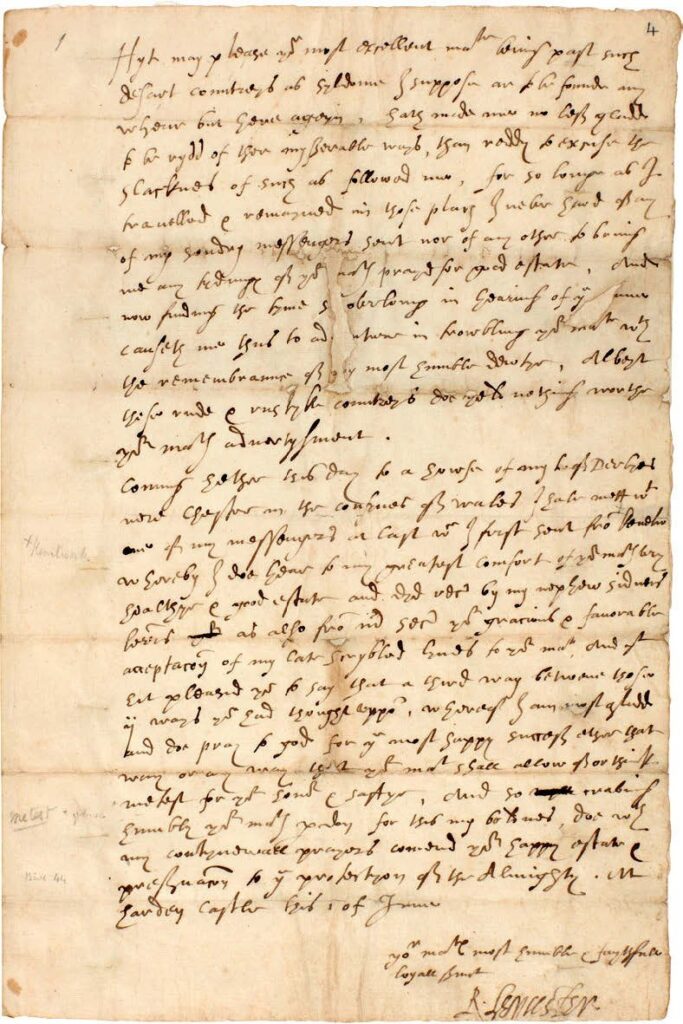 4
Hyt may please yor most excellent matie being past such
desart countreys as syldome I suppose ar to be founde any
wheare but here ageyn, hath made me no less gladde
to be rydd of ther mysserable ways, than reddy to excuse the
slacknes of such as followed me, for so longe as I
travelled & remayned in those places I never hard of any
of my sondry messengers sent nor of any other to bring
me any tydinges of yor maties prayd for good estate, And
now finding the tyme overlong in hearing of yt
causeth me thus to adventure in trowbling yor matie wth
the remembrance of my most humble dewtye, Albeyt
these rude & rustyke countreys doe yeld nothing worthe
yor maties advertysment.
Coming hether this day to a howse of my L. of Derbyes
nere Chester in the confynes of Wales I have mett wth
one of my messengers at last wch I first sent from Kenelw
wherby I doe hear to my greatest comfort of yor maties very
healthye & good estate and dyd rece by my nephew Sidneis
letters as also fro secr yor gracious & favorable
acceptacon of my late scrybled lynes to yor matie, And yt
hit pleasid yow to say that a third way betwene those
ij ways yow had thought uppon, wherof I am most gladd
and doe pray to god for yor most happy success ether that
way or any way that yor matie shall allow of or think
metest for yor honor & saftye, And so craving
humbly yor maties pardon for this my boldnes, doe wth
my contynewall prayers comend yor happy estate &
preservacon to ye protection of the Almighty. At
Harden Castle this 1 of June
yor maties most humble & faythfull
loyall srvnt
R. Leycester